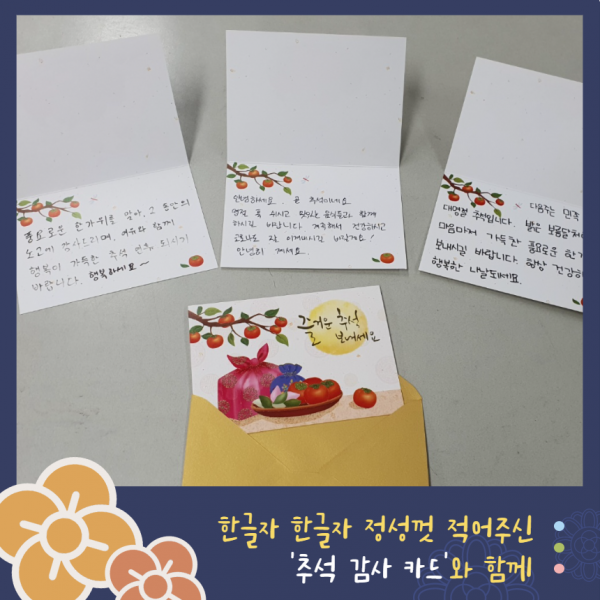 풍요로운 한가위를 맞아, 그 동안의
노고에 감사드리며, 여유와 함께
행복이 가득한 추석 연휴 되시기
바랍니다. 행복하세요~
안녕하세요. 곧 추석이네요.
명절 푹 쉬시고 맛있는 음식들과 함께
하시길 바랍니다. 계속해서 건강하시고
코로나도 잘 이겨내시길 바랄게요!
안녕히 계세요.
다음주는 민족
대명절 추석입니다. 밝은 보름달처
마음마저 가득한 풍요로운 한가
보내시길 바랍니다. 항상 건강하
행복한 나날되세요.
즐거운 추석
보내세요
한글자 한글자 정성껏 적어주신
'추석 감사 카드'와 함께